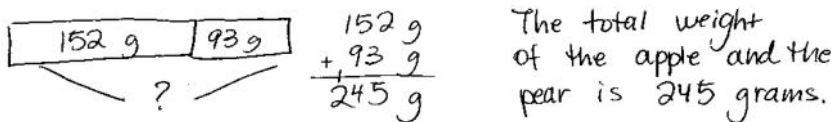 152 g 93 g
?
152 g
+ 93 g
1
245 g
The total weight
of the apple and the
pear is 245 grams.